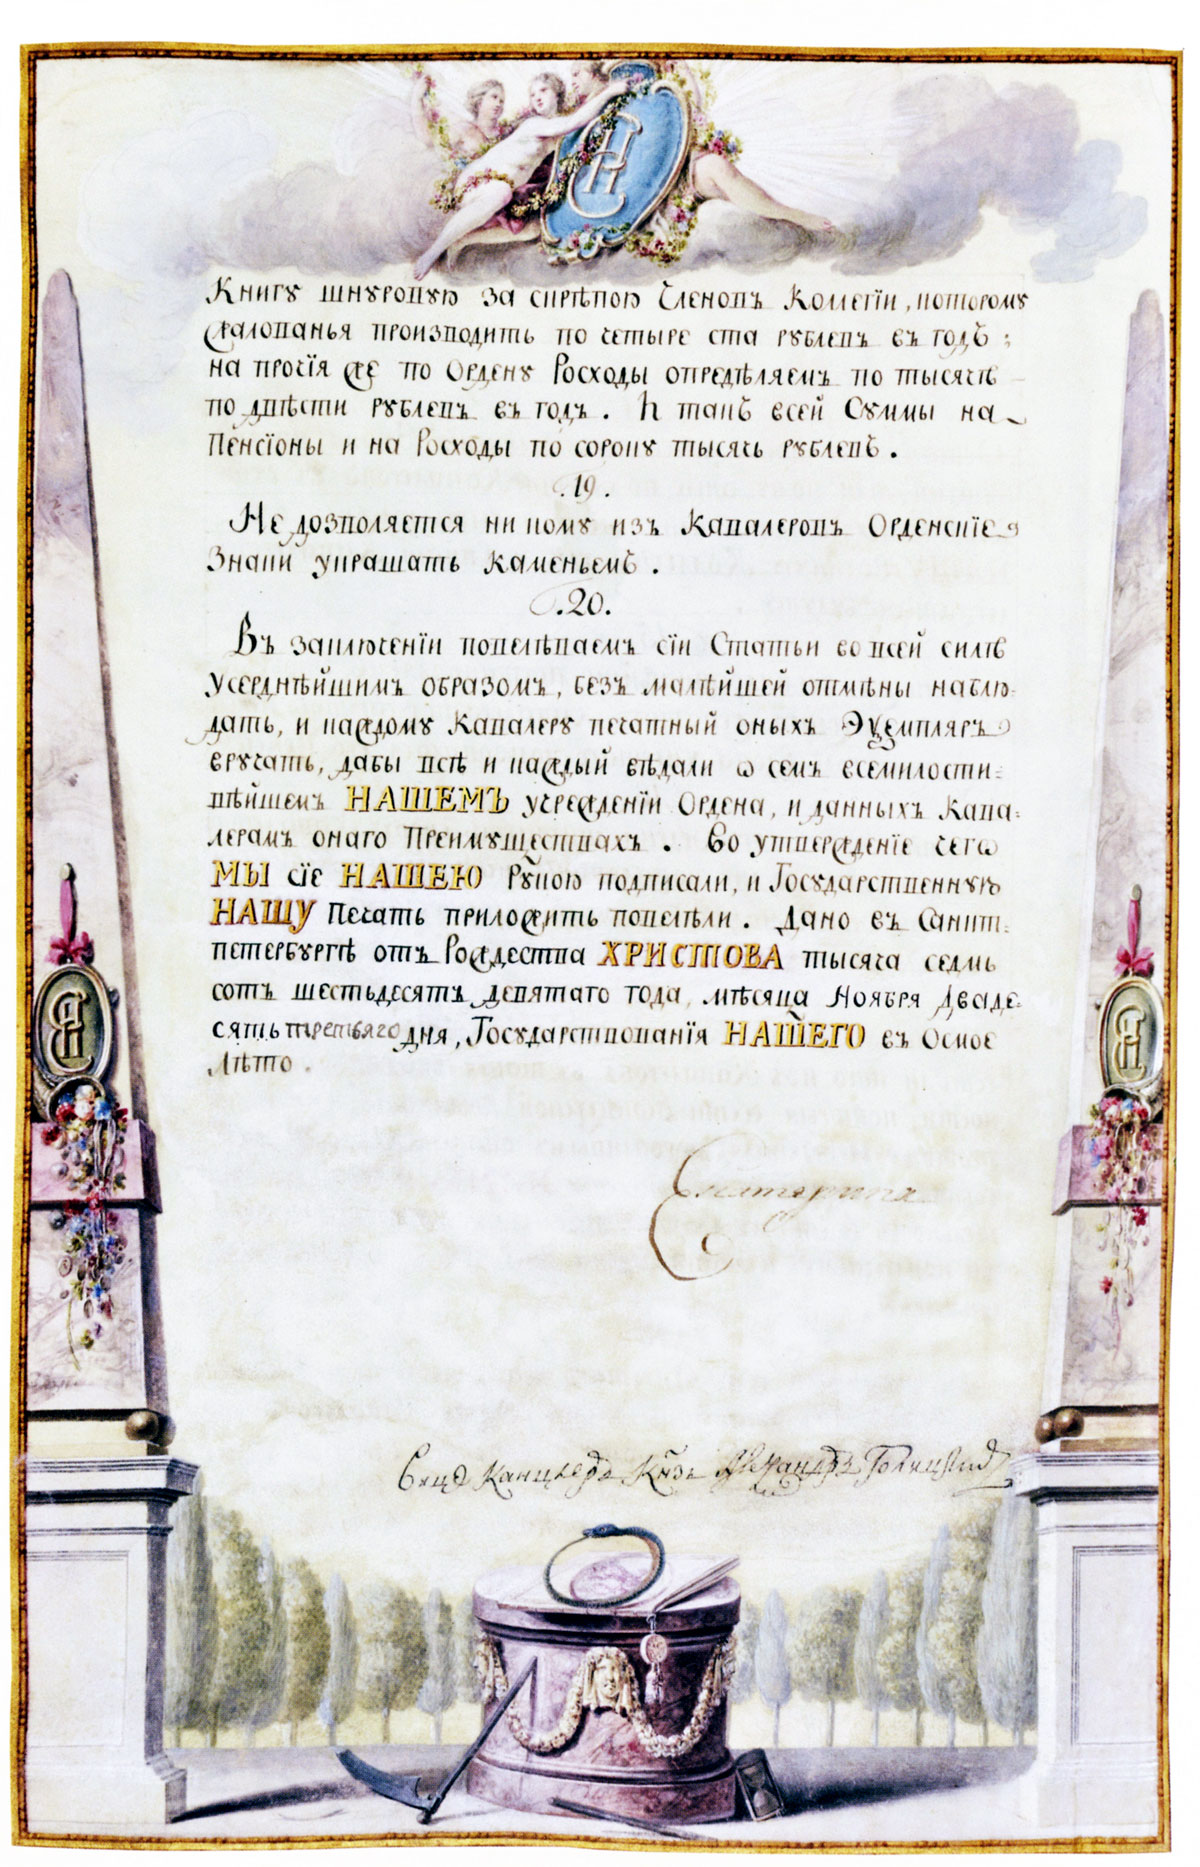 Книгу шнуровую за скрѣпою Членовъ Коллегіи, которому
Жалованья производить по четыре ста рублевъ въ годъ;
на прочія же по Ордену Росходы опредѣляемъ по тысячѣ
по двѣсти рублевъ въ годъ. И такъ всей Суммы на
Пенсіоны и на Росходы по сороку тысячь рублевъ.
.19.
Не дозволяется ни кому изъ Кавалеровъ Орденскіе
Знаки украшать каменьемъ.
.20.
Въ заключеніи повелѣваемъ сіи Статьи во всей силѣ
усерднѣйшимъ образомъ, безъ малѣйшей отмѣны наблю-
дать, и каждому Кавалеру печатный оныхъ Экземпляръ
вручать, дабы всѣ и каждый вѣдали ѡ семъ всемилости-
вѣйшемъ НАШЕМЪ учрежденіи Ордена, и данныхъ Кава-
лерамъ онаго Преимуществахъ. Во утвержденіе чегѡ
МЫ сіе НАШЕЮ Рукою подписали, и Государственную
НАШУ Печать приложить повелѣли. Дано въ Санкт-
петербургѣ отъ Рождества ХРИСТОВА тысяча седмь
сотъ шестьдесятъ девятаго года, мѣсяца Ноября Дваде-
сять третьяго дня, Государствованія НАШЕГО въ Осмое
Лѣто.
Екатерина
Вице Канцлеръ Кнзь Александръ Голицынъ